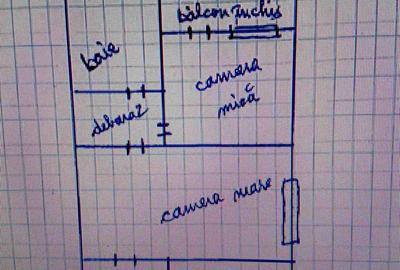 balcon închis
baie
camera
mică
debara
camera mare